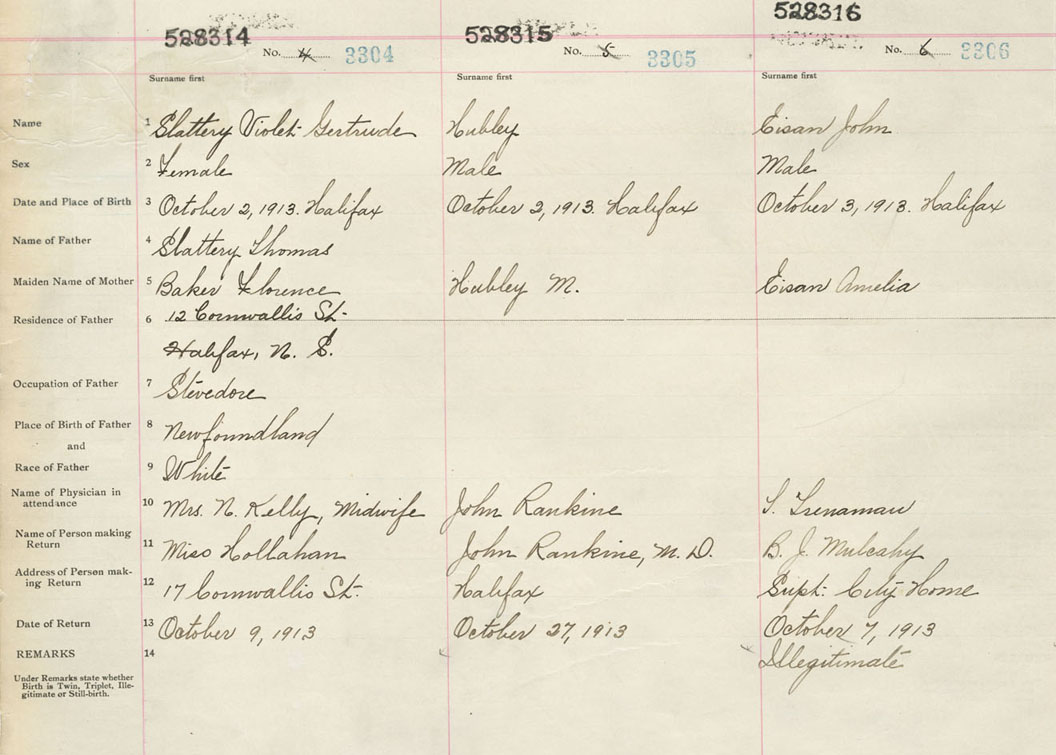 528314 528315 528316
No. 4 3304 No. 5 3305 No. 6 3306
Surname first Surname first Surname first
Name 1 Slattery Violet Gertrude Hubley Eisan John
Sex 2 Female Male Male
Date and Place of Birth 3 October 2, 1913. Halifax October 2, 1913. Halifax October 3, 1913. Halifax
Name of Father 4 Slattery Thomas
Maiden Name of Mother 5 Baker Florence Hubley M. Eisan Amelia
Residence of Father 6 12 Cornwallis St.
Halifax, N. S.
Occupation of Father 7 Stevedore
Place of Birth of Father 8 Newfoundland
and
Race of Father 9 White
Name of Physician in
attendance 10 Mrs. N. Kelly, Midwife John Rankine Trenaman
Name of Person making
Return 11 Miss Hollahan John Rankine, M. D. B. J. Mulcahy
Address of Person mak-
ing Return 12 17 Cornwallis St. Halifax Supt. City Home
Date of Return 13 October 9, 1913 October 27, 1913 October 7, 1913
REMARKS 14 Illegitimate
Under Remarks state whether
Birth is Twin, Triplet, Ille-
gitimate or Still-birth.